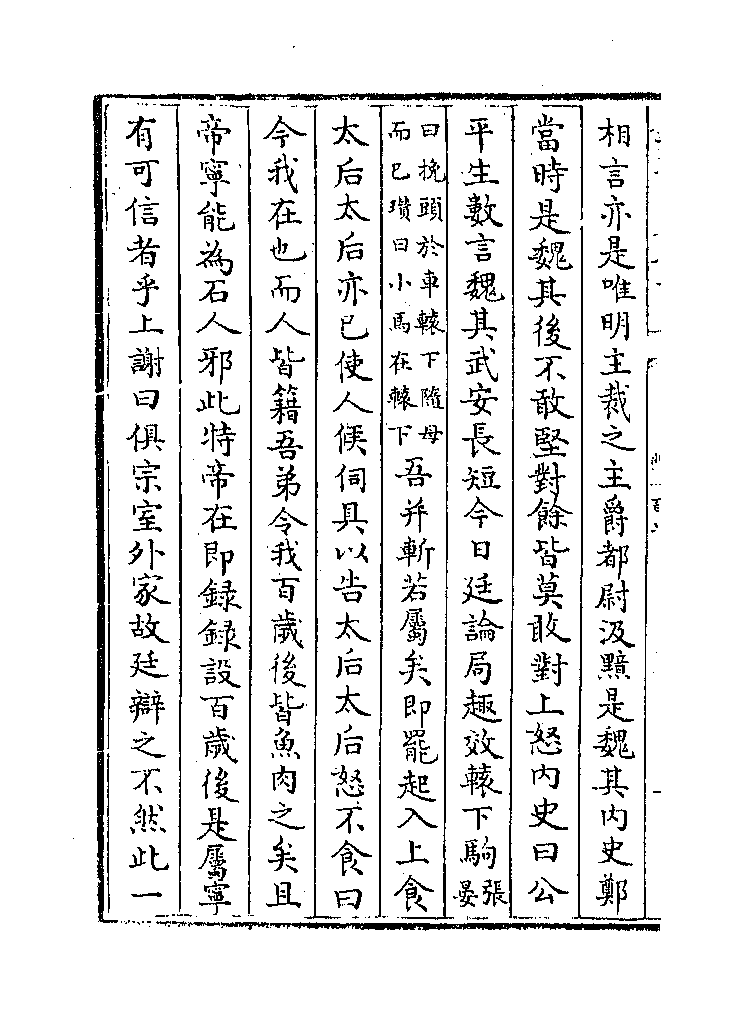 相言亦是唯明主裁之主爵都尉汲黯是魏其内史鄭
當時是魏其後不敢堅對餘皆莫敢對上怒内史曰公
平生數言魏其武安長短今日廷論局趣效轅下駒張晏
曰挽頭於車轅下隨母
而已瓚曰小馬在轅下
吾并斬若屬矣即罷起入上食
太后太后亦已使人候伺具以告太后太后怒不食曰
今我在也而人皆籍吾弟令我百歲後皆魚肉之矣且
帝寧能為石人邪此特帝在即録録設百歲後是屬寧
有可信者乎上謝曰俱宗室外家故廷辯之不然此一